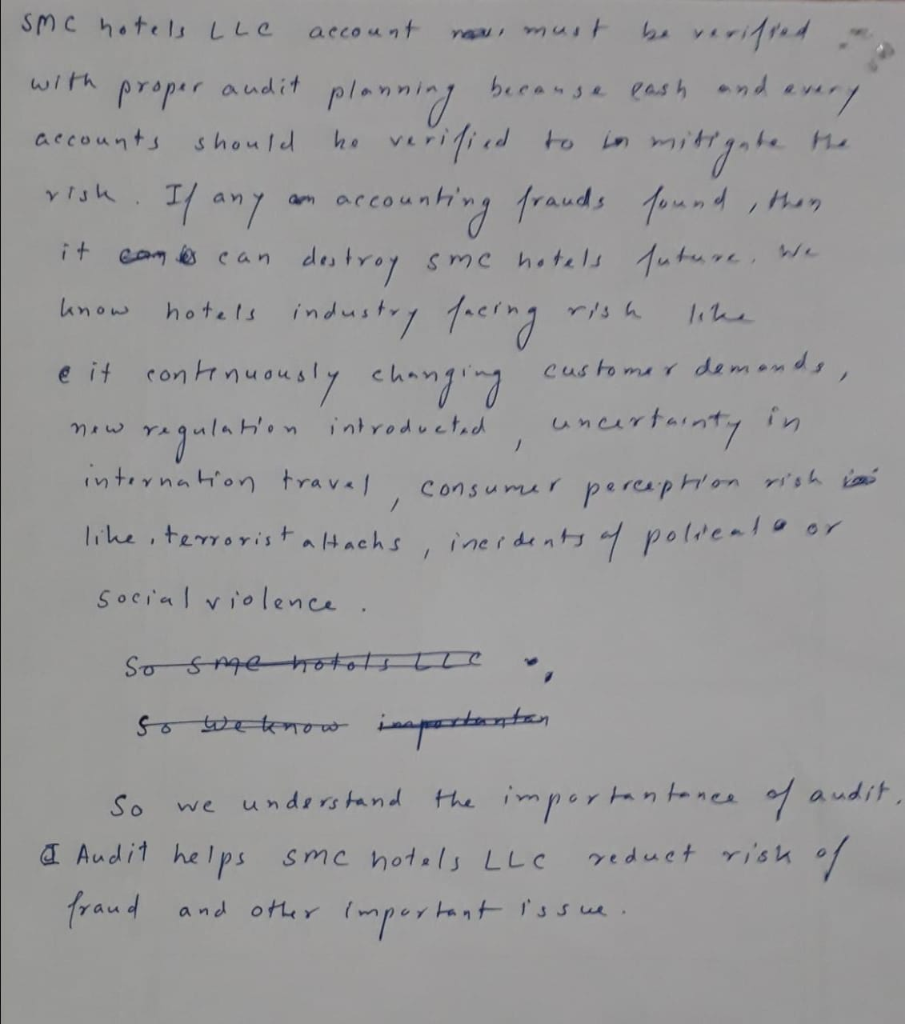 SMC hotels LLC account must be verified
with proper audit planning because cash and every
accounts should be verified to in mitigate the
risk. If any an accounting frauds found, then
it can destroy SMC hotels future. We
know hotels industry facing risk like
it continuously changing customer demands,
new regulation introducted, uncertainty in
internation travel, consumer perception risk
like, terrorist attachs, incidents of polical or
social violence.
So SMC hotels LLC
So We know importantan
So we understand the importantance of audit.
Audit helps SMC hotels LLC reduct risk of
fraud and other important issue.